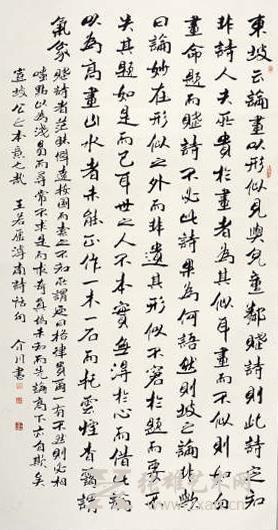 東坡云畫以形似見與兒童鄰賦詩則此詩定知
非詩人夫所貴於畫者為其似耳畫而不似則如勿
畫命題而賦詩不必此詩果為何語然則坡之論非歟
曰論妙在形似之外而非遺其形似不窘於題而要不
失其題如是而已耳世之人不本其實無得於心而借此論
以為高畫山水者未能正作一木一石而托雲煙杳靄謂
氣象
賦詩者茫昧僻遠按題而索之不知所謂乃曰格律貴爾一有不然則必相
嗤點以為淺易而尋常不求是而求奇真偽未知而先論高下亦自欺矣
豈坡公之本意也哉 王若虛滹南詩話句 介川書